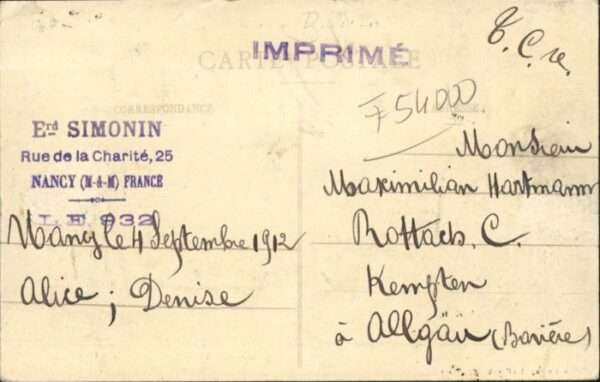 T. C. V.
IMPRIMÉ
CARTE POSTALE
CORRESPONDANCE
54000
Erd SIMONIN
Rue de la Charité, 25
NANCY (M-&-M) FRANCE
L E 932
Nancy le 4 Septembre 1912
Alice; Denise
Monsieur
Maximilian Hartmann
Rottach, C.
Kempten
à Allgäü (Bavière)